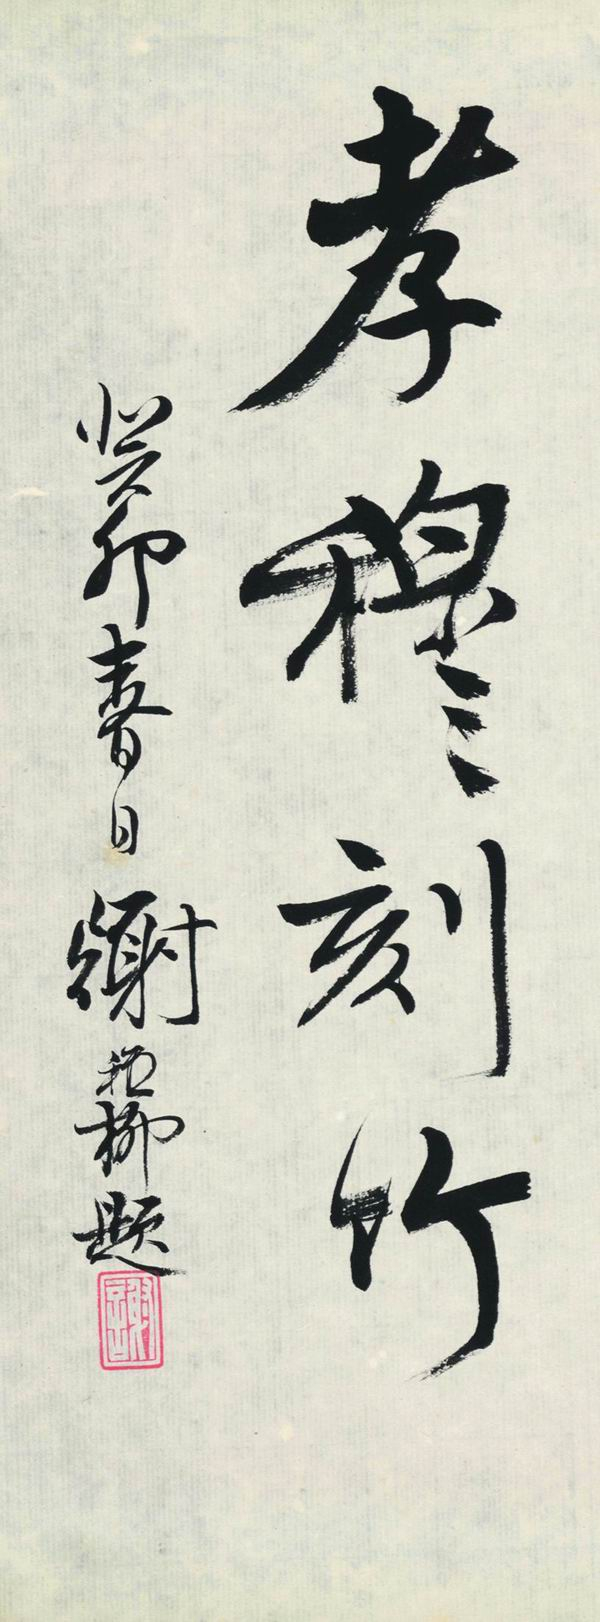 孝穆刻竹
癸卯春日謝稚柳題
謝